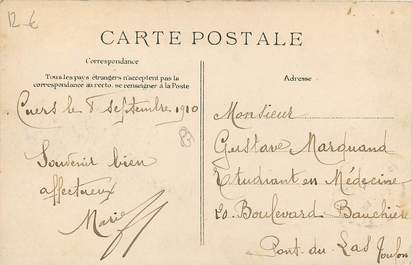 12 €
CARTE POSTALE
Correspondance
Tous les pays étrangers n'acceptent pas la
correspondance au recto. se renseigner à la Poste
Cuers le 8 septembre 1910
83
Souvenir bien
affectueux
Marie
Adresse
Monsieur
Gustave Marquand
Etudiant en Médecine
20 Boulevard Bauchière
Pont du Las Toulon